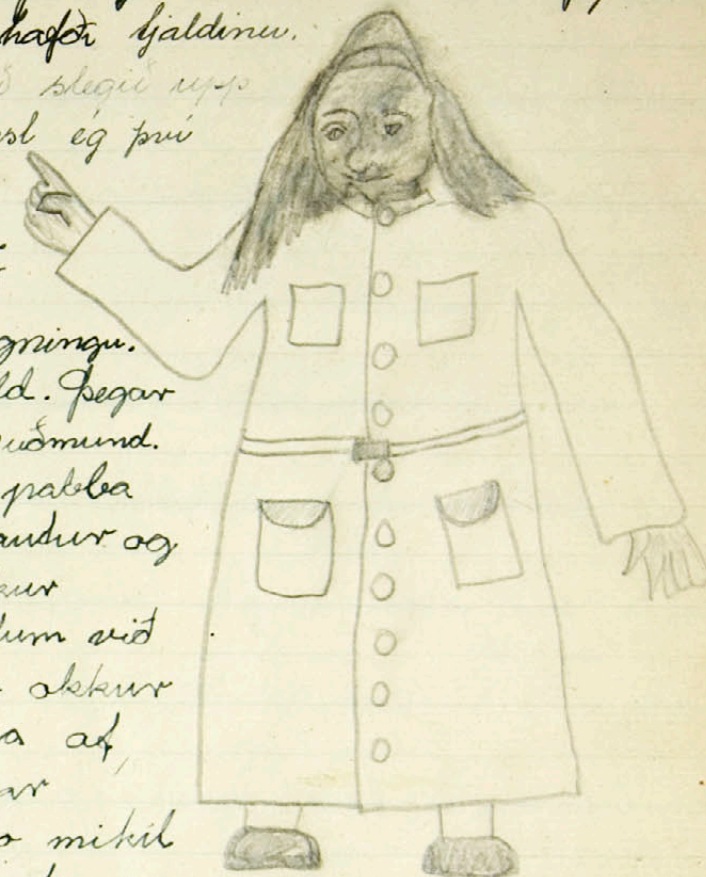 hafði tjaldinu.
slegið upp
ég því
gningu.
ld. Þegar
uðmund.
pabba
audur og
kur
dum við
okkur
a af,
ar
o mikil